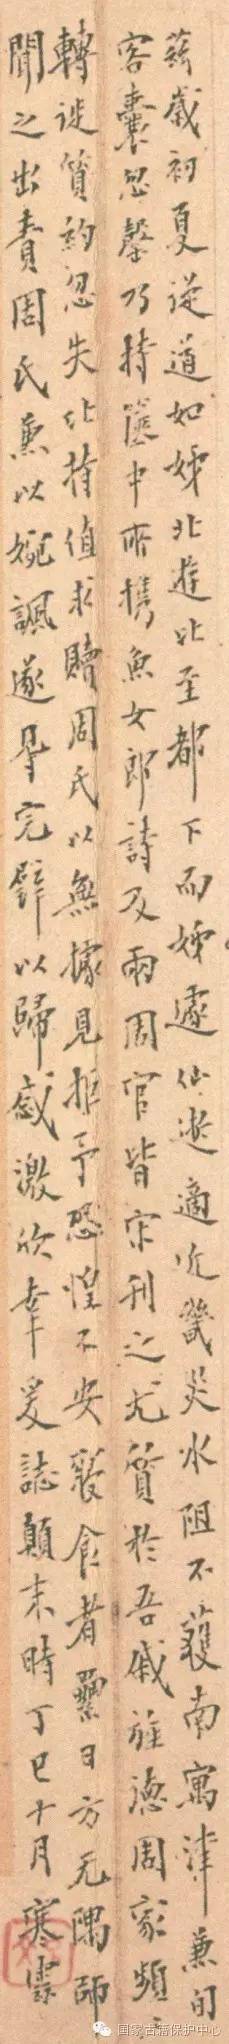 茲歲初夏從道如姊北遊比至都下而姊遽仙逝適近畿災水阻不獲南寓津兼旬
客囊忽罄乃持篋中所攜魚女郎詩及兩周官皆宋刊之尤質於吾戚旌德周家頻
轉徙質約忽失比措值求贖周氏以無據見拒予恐惶不安寢食者纍日方无隅師
聞之出責周氏兼以婉諷遂得完璧以歸感激欣幸爰誌顛末時丁巳十月寒雲
国家古籍保护中心